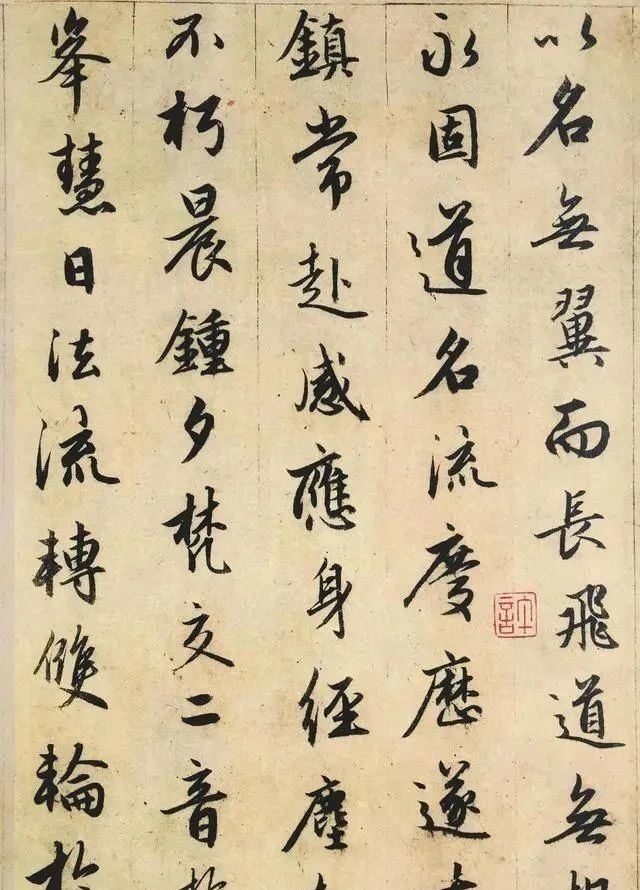 以名無翼而長飛道無
永固道名流慶歷遂
鎮常赴感應身經塵
不朽晨鍾夕梵交二音於
峯慧日法流轉雙輪於
許